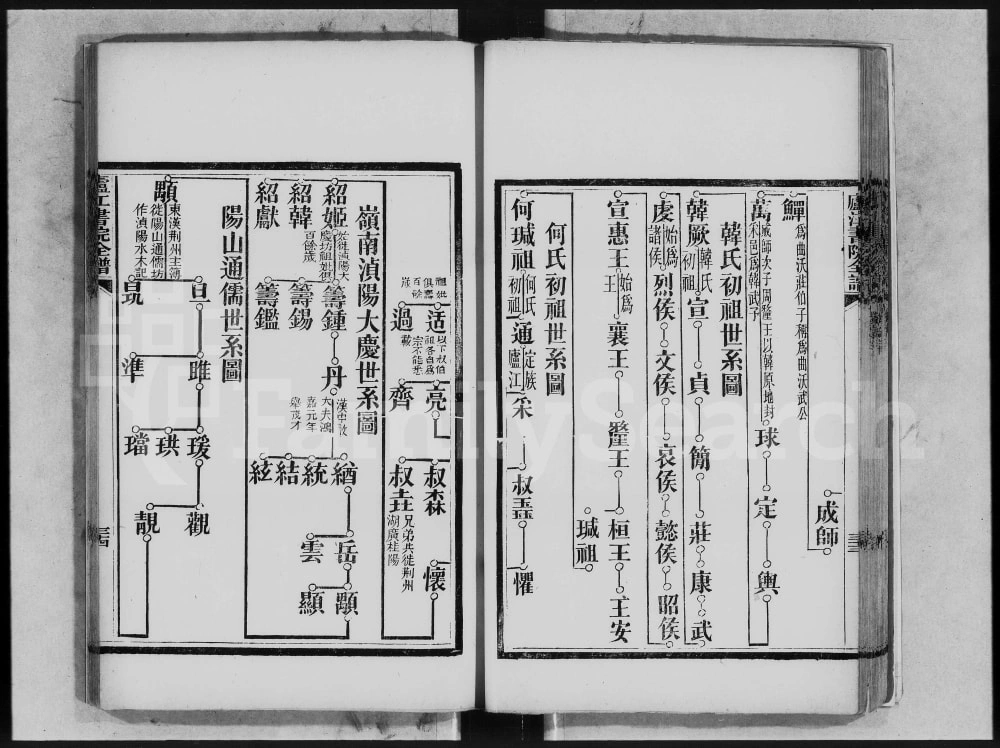 成師
鱓為曲沃莊伯子稱為曲沃武公
萬成師次子周釐王以韓原地封采邑為韓武子
球 定 輿
韓氏初祖世系圖
韓厥韓氏初祖 宣 貞 簡 莊 康 武
虔始為諸侯 烈侯 文侯 哀侯 懿侯 昭侯
宣惠王始為王 襄王 釐王 桓王 王安
瑊祖
何氏初祖世系圖
何瑊祖何氏初祖 通定族廬江 采 叔 懼
适以下叔伯祖各自為宗不能悉載
亮 叔森 懷
過 齊 叔垚兄弟共徙荆州湖廣桂陽
嶺南湞陽大慶世系圖
紹姬 籌鍾 丹 緧 岳 顒
紹韓 籌錫 統 雲 顯
紹獻 籌鑑 結 絃
陽山通儒世系圖
顒東漢荆州主簿徙陽山通儒坊作湞陽水木記
旦 雎 瑗 觀
晁 準 珙 璫 靚
廬江書院全譜
FamilySearch